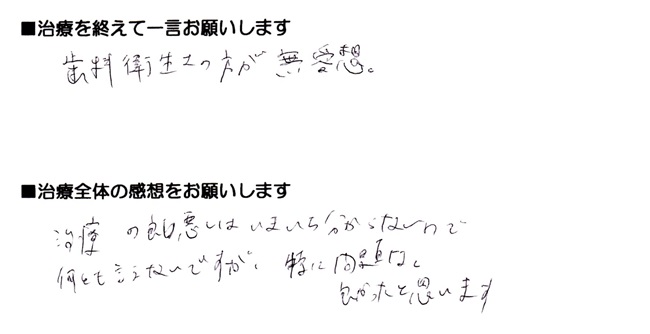 ■治療を終えて一言お願いします
歯科衛生士の方が無愛想。
■治療全体の感想をお願いします
治療の良し悪しはいまいち分からないので
何とも言えないですが、特に問題なく
良かったと思います